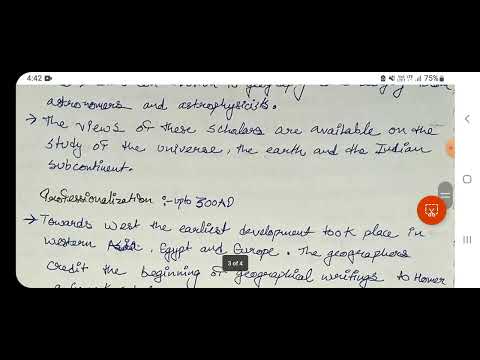 4:42
75%
astronomers and astrophysicists.
→ The views of these scholars are available on the
study of the universe, the earth and the Indian
subcontinent.
Professionalization :- upto 300AD
→ Towards west the earliest development took place in
western Asia, Egypt and Europe. The geographers
3 of 4
credit the beginning of geographical writings to Homer